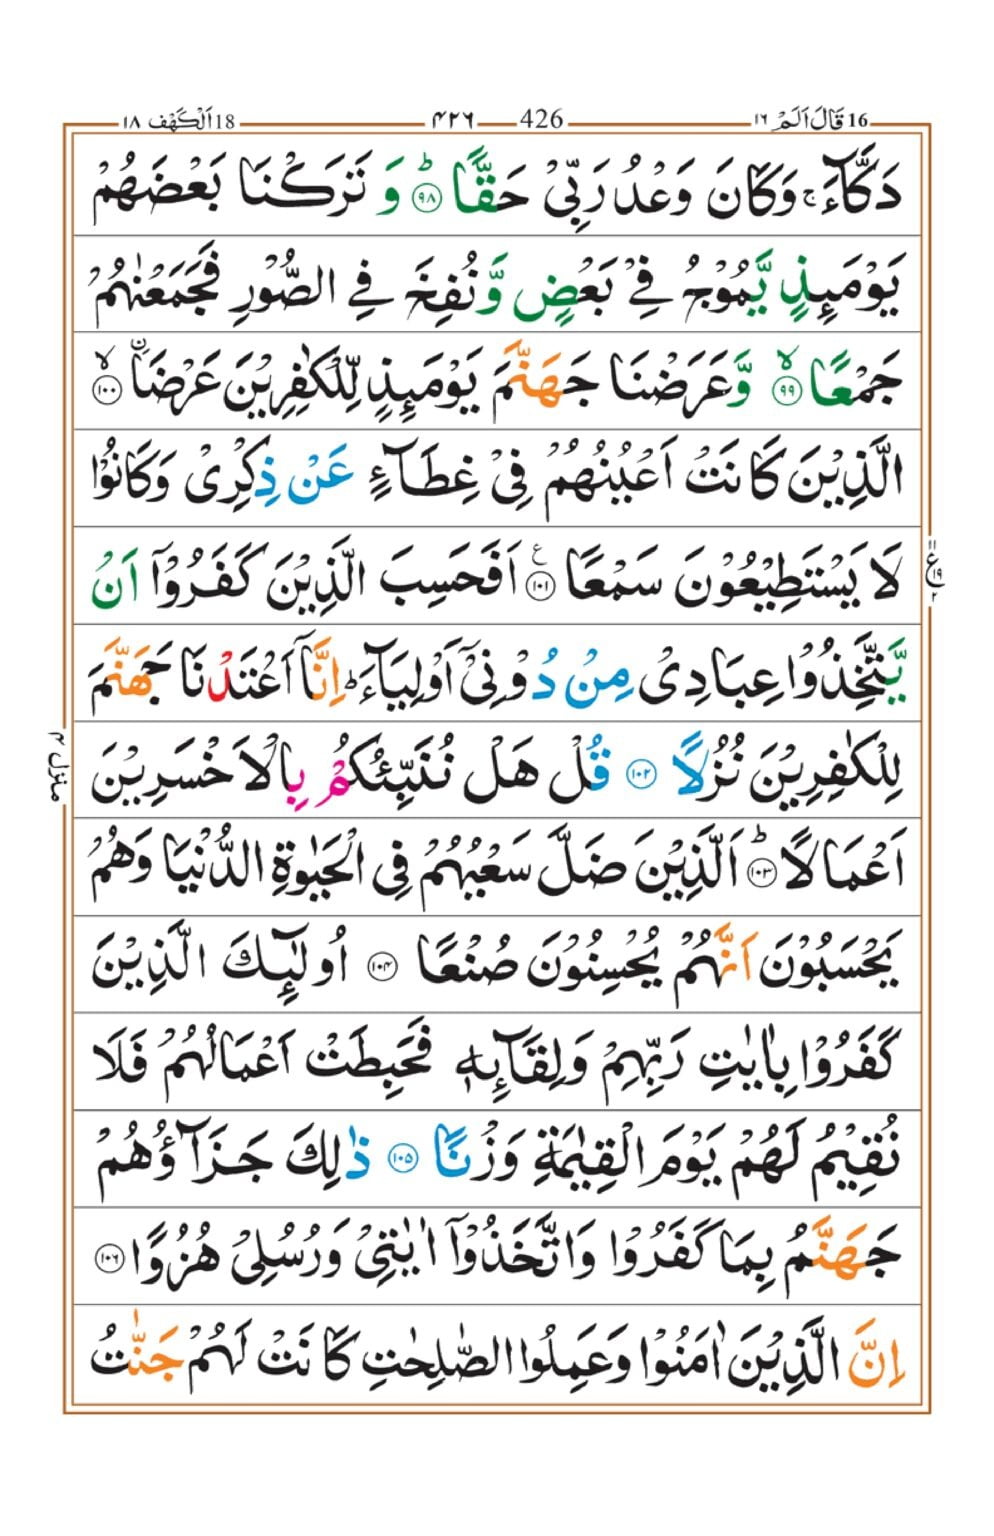 16 قَالَ اَلَمْ ١٦ 426 ۴۲۶ 18 اَلْكَهْف ١٨
دَكَّآءَ ۚ وَكَانَ وَعْدُ رَبِّىْ حَقًّا ؕ ﴿۹۸﴾ وَ تَرَكْنَا بَعْضَهُمْ
يَوْمَٮِٕذٍ يَّمُوْجُ فِىْ بَعْضٍ وَّنُفِخَ فِى الصُّوْرِ فَجَمَعْنٰهُمْ
جَمْعًا ۙ ﴿۹۹﴾ وَّعَرَضْنَا جَهَنَّمَ يَوْمَٮِٕذٍ لِّلْكٰفِرِيْنَ عَرْضَاۨ ۙ ﴿۱۰۰﴾
الَّذِيْنَ كَانَتْ اَعْيُنُهُمْ فِىْ غِطَآءٍ عَنْ ذِكْرِىْ وَكَانُوْا
لَا يَسْتَطِيْعُوْنَ سَمْعًا ﴿۱۰۱﴾ ع اَفَحَسِبَ الَّذِيْنَ كَفَرُوْۤا اَنْ
۱۱ ع ۱۹ ۲
يَّتَّخِذُوْا عِبَادِىْ مِنْ دُوْنِىْۤ اَوْلِيَآءَ ؕ اِنَّاۤ اَعْتَدْنَا جَهَنَّمَ
منزل ۴
لِلْكٰفِرِيْنَ نُزُلًا ﴿۱۰۲﴾ قُلْ هَلْ نُنَبِّئُكُمْ بِالْاَخْسَرِيْنَ
اَعْمَالًا ؕ ﴿۱۰۳﴾ اَلَّذِيْنَ ضَلَّ سَعْيُهُمْ فِى الْحَيٰوةِ الدُّنْيَا وَهُمْ
يَحْسَبُوْنَ اَنَّهُمْ يُحْسِنُوْنَ صُنْعًا ﴿۱۰۴﴾ اُولٰٓٮِٕكَ الَّذِيْنَ
كَفَرُوْا بِاٰيٰتِ رَبِّهِمْ وَلِقَآٮِٕهٖ فَحَبِطَتْ اَعْمَالُهُمْ فَلَا
نُقِيْمُ لَهُمْ يَوْمَ الْقِيٰمَةِ وَزْنًا ﴿۱۰۵﴾ ذٰلِكَ جَزَآؤُهُمْ
جَهَنَّمُ بِمَا كَفَرُوْا وَاتَّخَذُوْۤا اٰيٰتِىْ وَرُسُلِىْ هُزُوًا ﴿۱۰۶﴾
اِنَّ الَّذِيْنَ اٰمَنُوْا وَعَمِلُوا الصّٰلِحٰتِ كَانَتْ لَهُمْ جَنّٰتُ